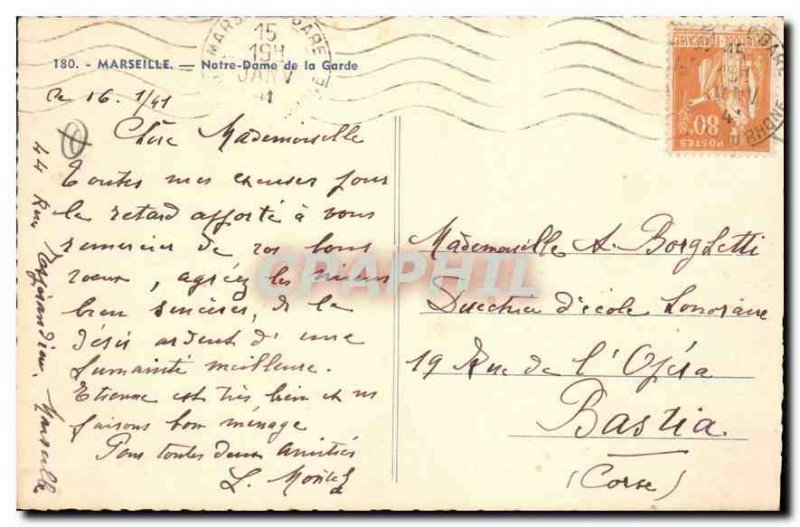 180. - MARSEILLE. — Notre-Dame de la Garde
MARSEILLE GARE
15
19H
JANV
41
Le 16. 1/41
Chère Mademoiselle
Toutes mes excuses pour
le retard apporté à vous
remercier de vos bons
voeux, agréez les miens
bien sincères, de la
désir ardent d'une
humanité meilleure.
Etienne est très bien et ns
faisons bon ménage
Pour toutes deux amitiés
44 Rue Marseille
Mademoiselle A. Borghetti
Directrice d'école honoraire
19 Rue de l'Opéra
Bastia
(Corse)
POSTES
80c
RHONE
CPARAPHIL